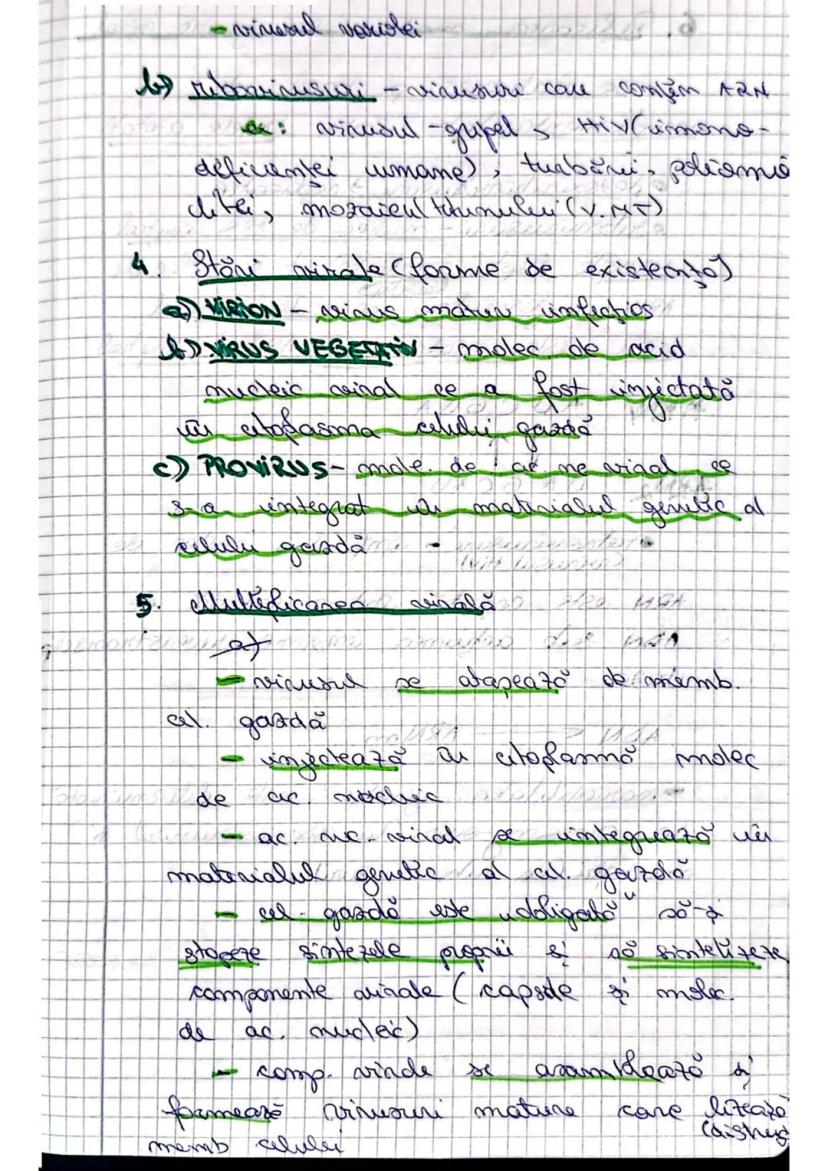 - virusul variolei
b) ribovirusuri - virusuri care conțin ARN
ex: virusul - gripei, HIV (imuno-
deficienței umane), turbării, poliomie
litei, mozaicul tutunului (V.M.T)
4. Stări virale (forme de existență)
a) VIRION - virus matur infecțios
b) VIRUS VEGETATIV - molec. de acid
nucleic viral ce a fost injectată
în citoplasma celulei gazdă
c) PROVIRUS - mole. de ac nc viral ce
s-a integrat în materialul genetic al
celulei gazdă
5. Multiplicarea virală
a)
- virusul se atașează de memb.
cel. gazdă
- injectează în citoplasmă molec
de ac nucleic
- ac. nc. viral se integrează în
materialul genetic al cel. gazdă
- cel. gazdă este obligată să-și
stopeze sintezele proprii și să sintetizeze
componente virale (capside și molec.
de ac. nucleic)
- comp. virale se asamblează și
formează virusuri mature care lizează
memb celulei